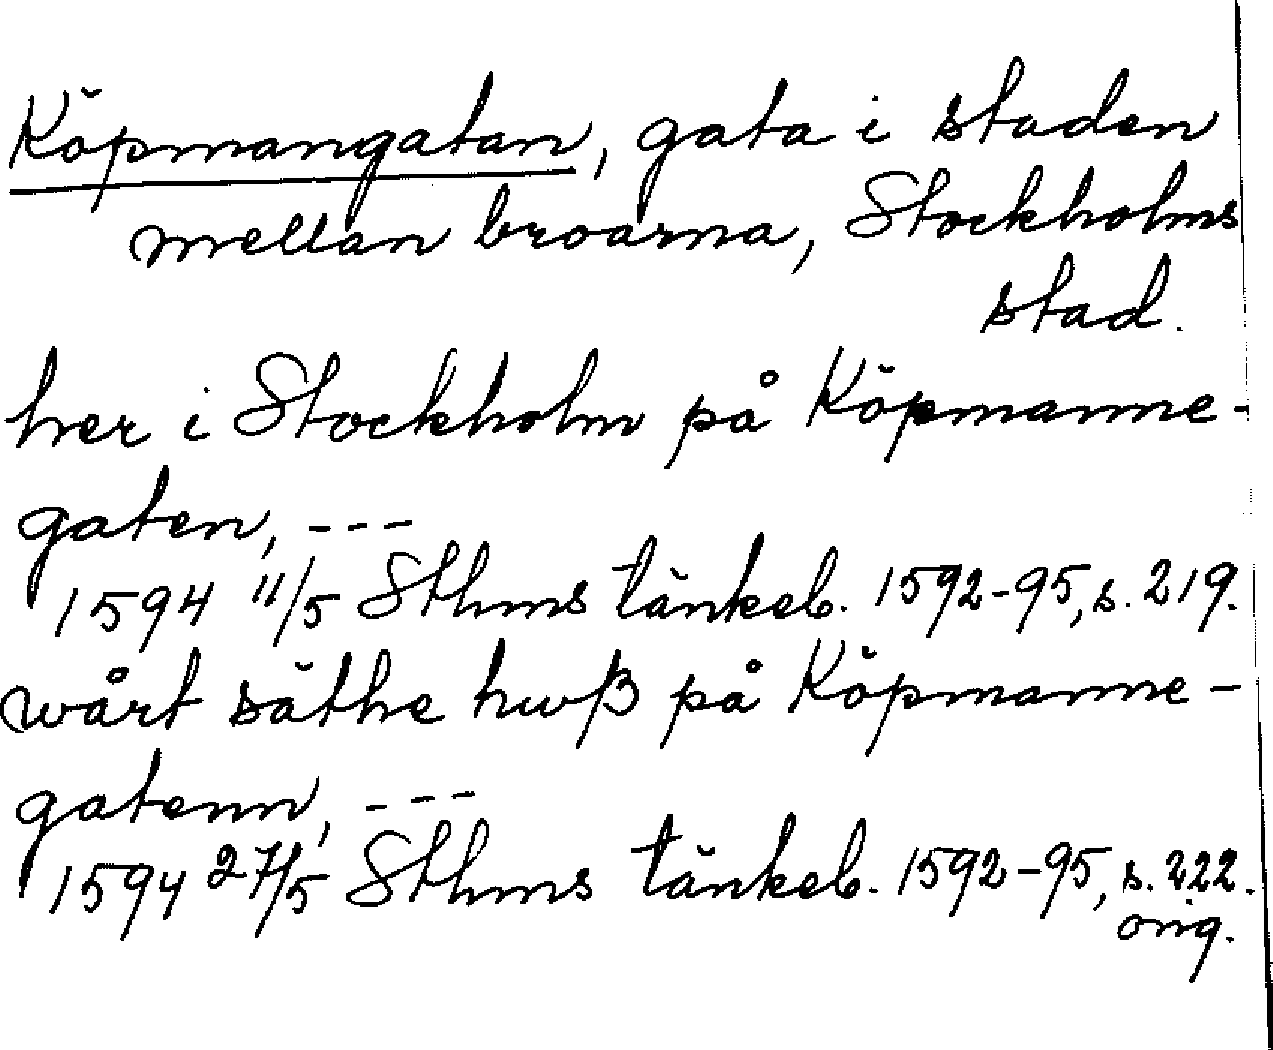 Köpmangatan, gata i staden
mellan broarna, Stockholms
stad.
her i Stockholm på Köpmanne-
gaten, ---
1594 11/5 Sthms tänkeb. 1592-95, s. 219.
wårt säthe hwß på Köpmanne-
gatenn, ---
1594 27/5 Sthms tänkeb. 1592-95, s. 222.
orig.